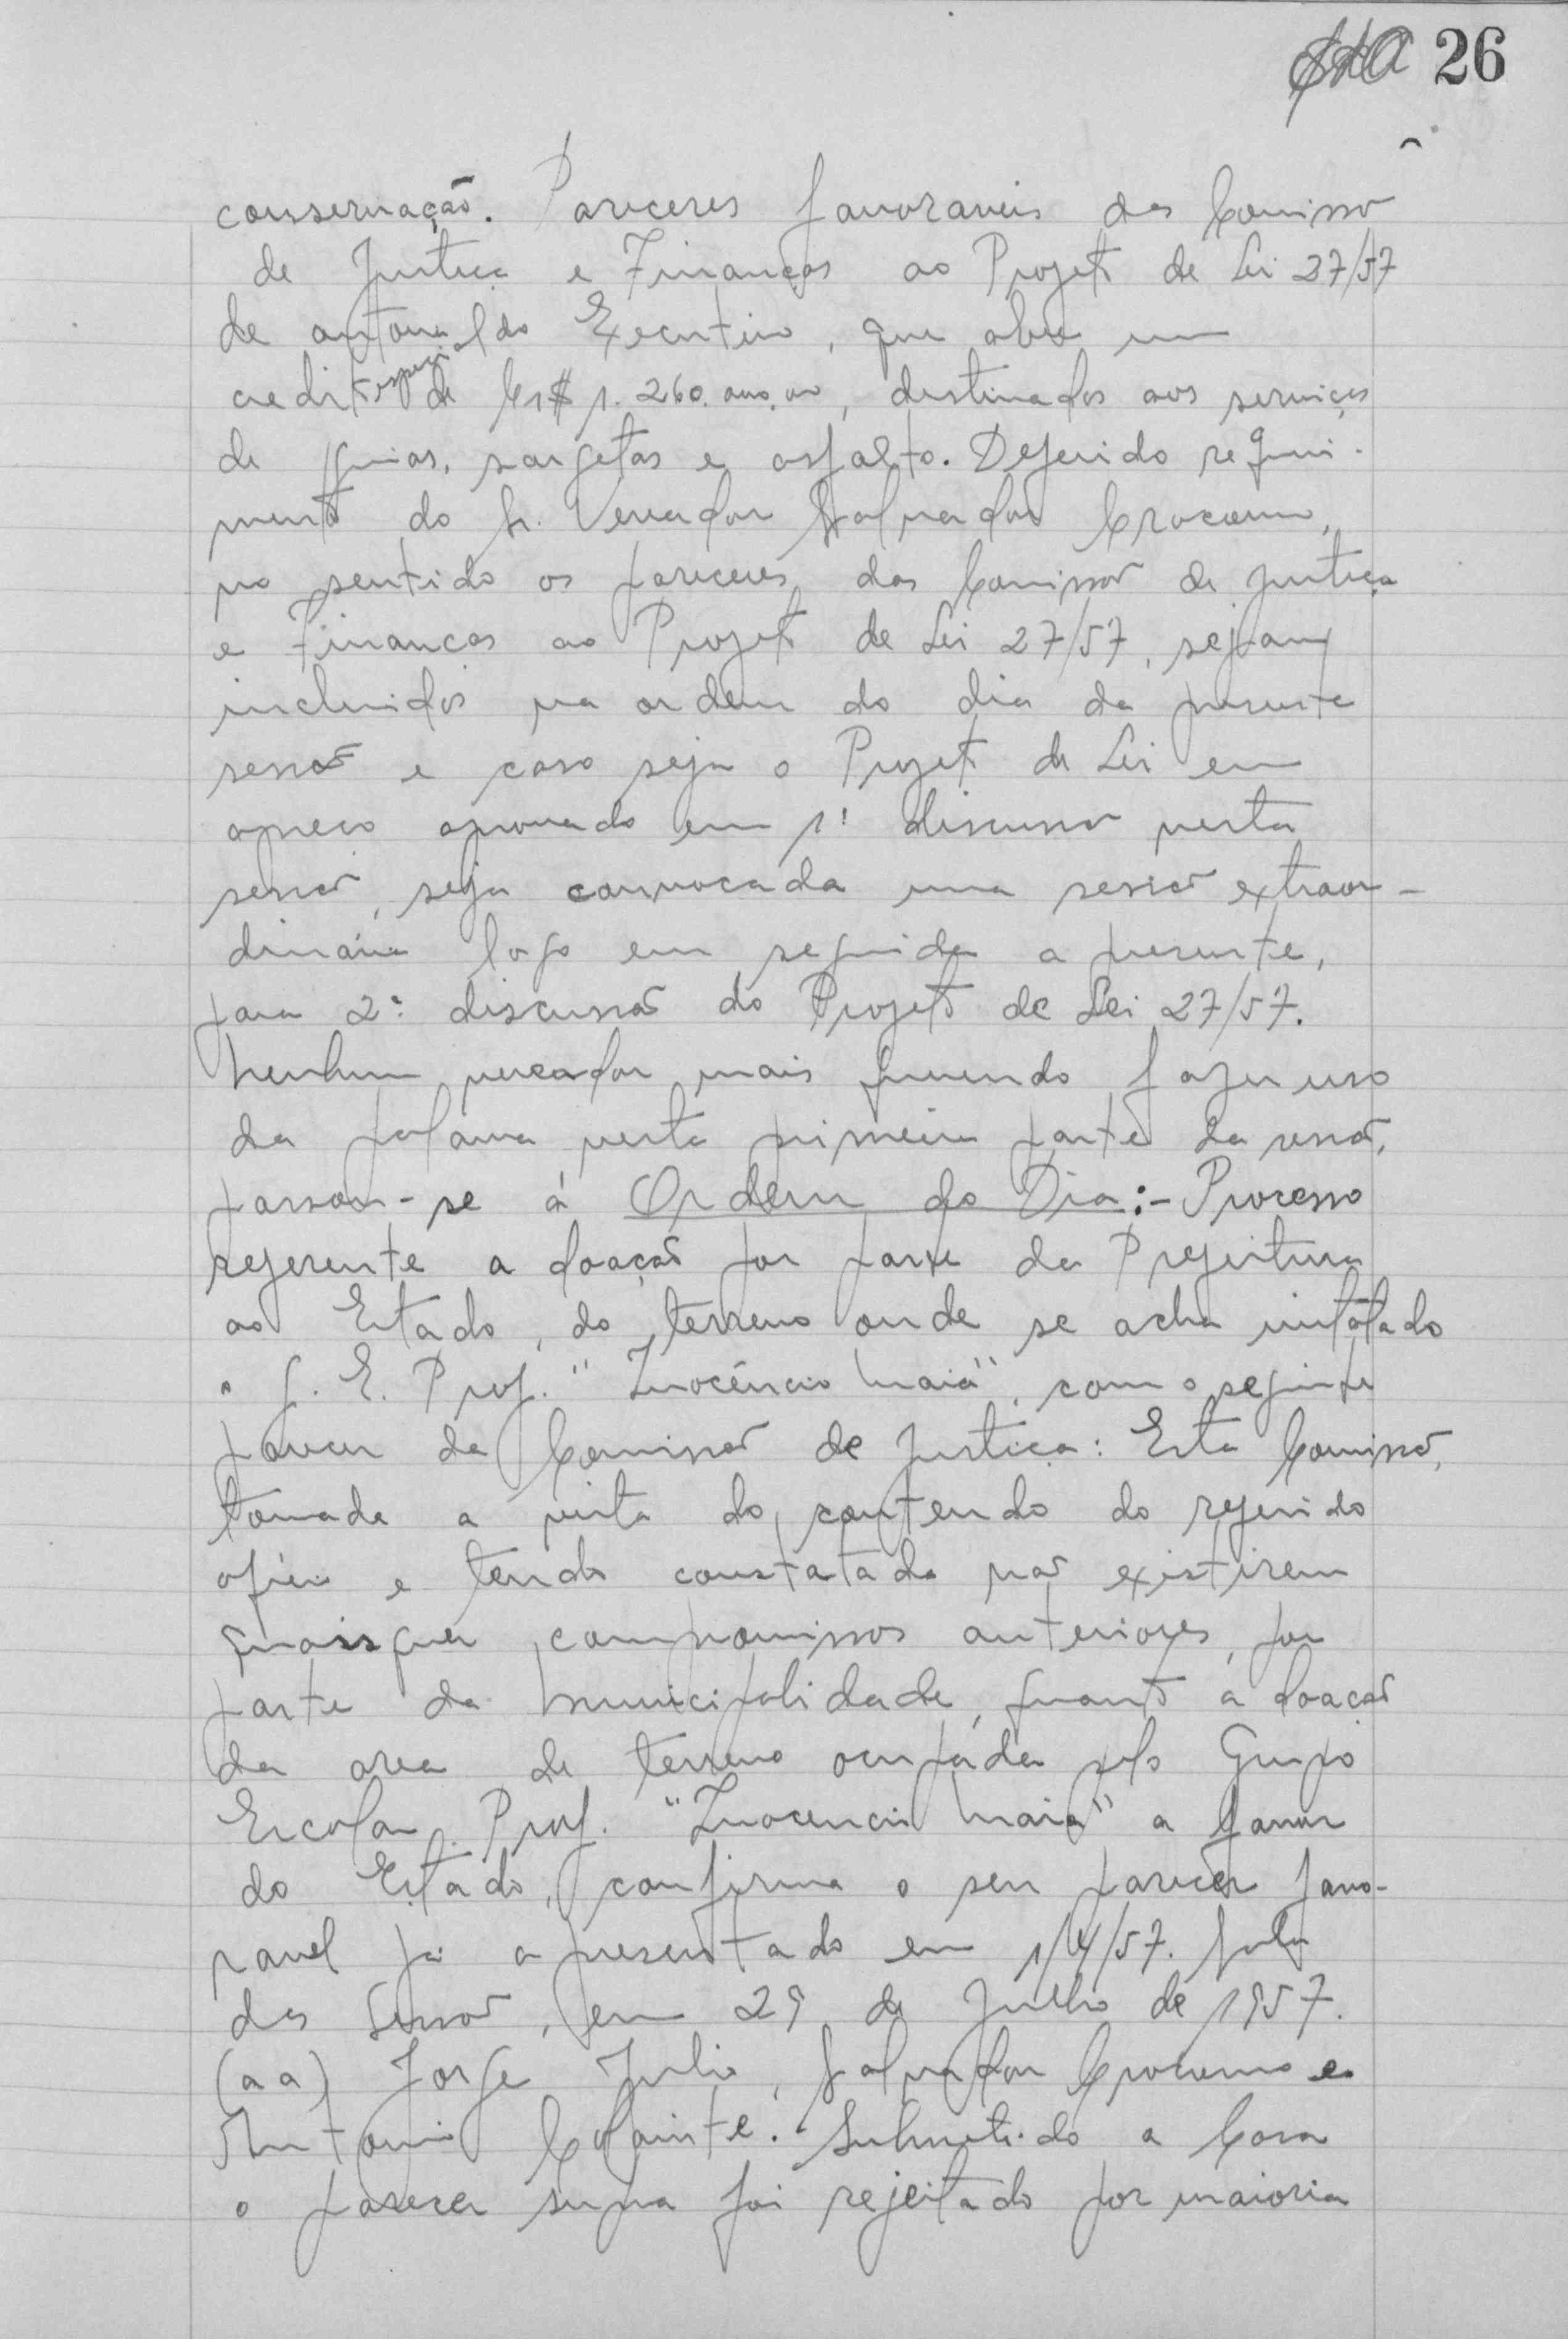 26
conservação. Pareceres favoraveis das Comissão
de Justiça e Finanças ao Projeto de Lei 27/57
de autoria do Executivo, que abre um
credito especial de Cr$ 1.260.000,00, destinados aos serviços
de guias, sargetas e asfalto. Deferido requeri-
mento do Sr. Vereador Salvador
no sentido os pareceres das Comissão de Justiça
e Finanças ao Projeto de Lei 27/57, sejam
incluidos na ordem do dia da presente
sessão e caso seja o Projeto de Lei em
apreço aprovado em 1ª discussão nesta
sessão, seja convocada uma sessão extraor-
dinária logo em seguida a presente,
para 2ª discussão do Projeto de Lei 27/57.
Nenhum vereador mais querendo fazer uso
da palavra nesta primeira parte da sessão,
passou-se á Ordem do Dia:- Processo
referente a doação por parte da Prefeitura
ao Estado, do terreno onde se acha instalado
o G. E. Prof. "Inocêncio Maia", com o seguinte
parecer da Comissão de Justiça: Esta Comissão,
tomada a vista do conteudo do referido
oficio e tendo constatado não existirem
quaisquer compromissos anteriores, por
parte da Municipalidade, quanto á doação
da area de terreno ocupada pelo Grupo
Escolar Prof. "Inocencio Maia" a favor
do Estado, confirma o seu parecer favo-
ravel já apresentado em 1/4/57. Sala
das Sessão, em 29 de Julho de 1957.
(aa) Jorge Julio, Salvador e
Antonio Submetido a Casa
o parecer supra foi rejeitado por maioria